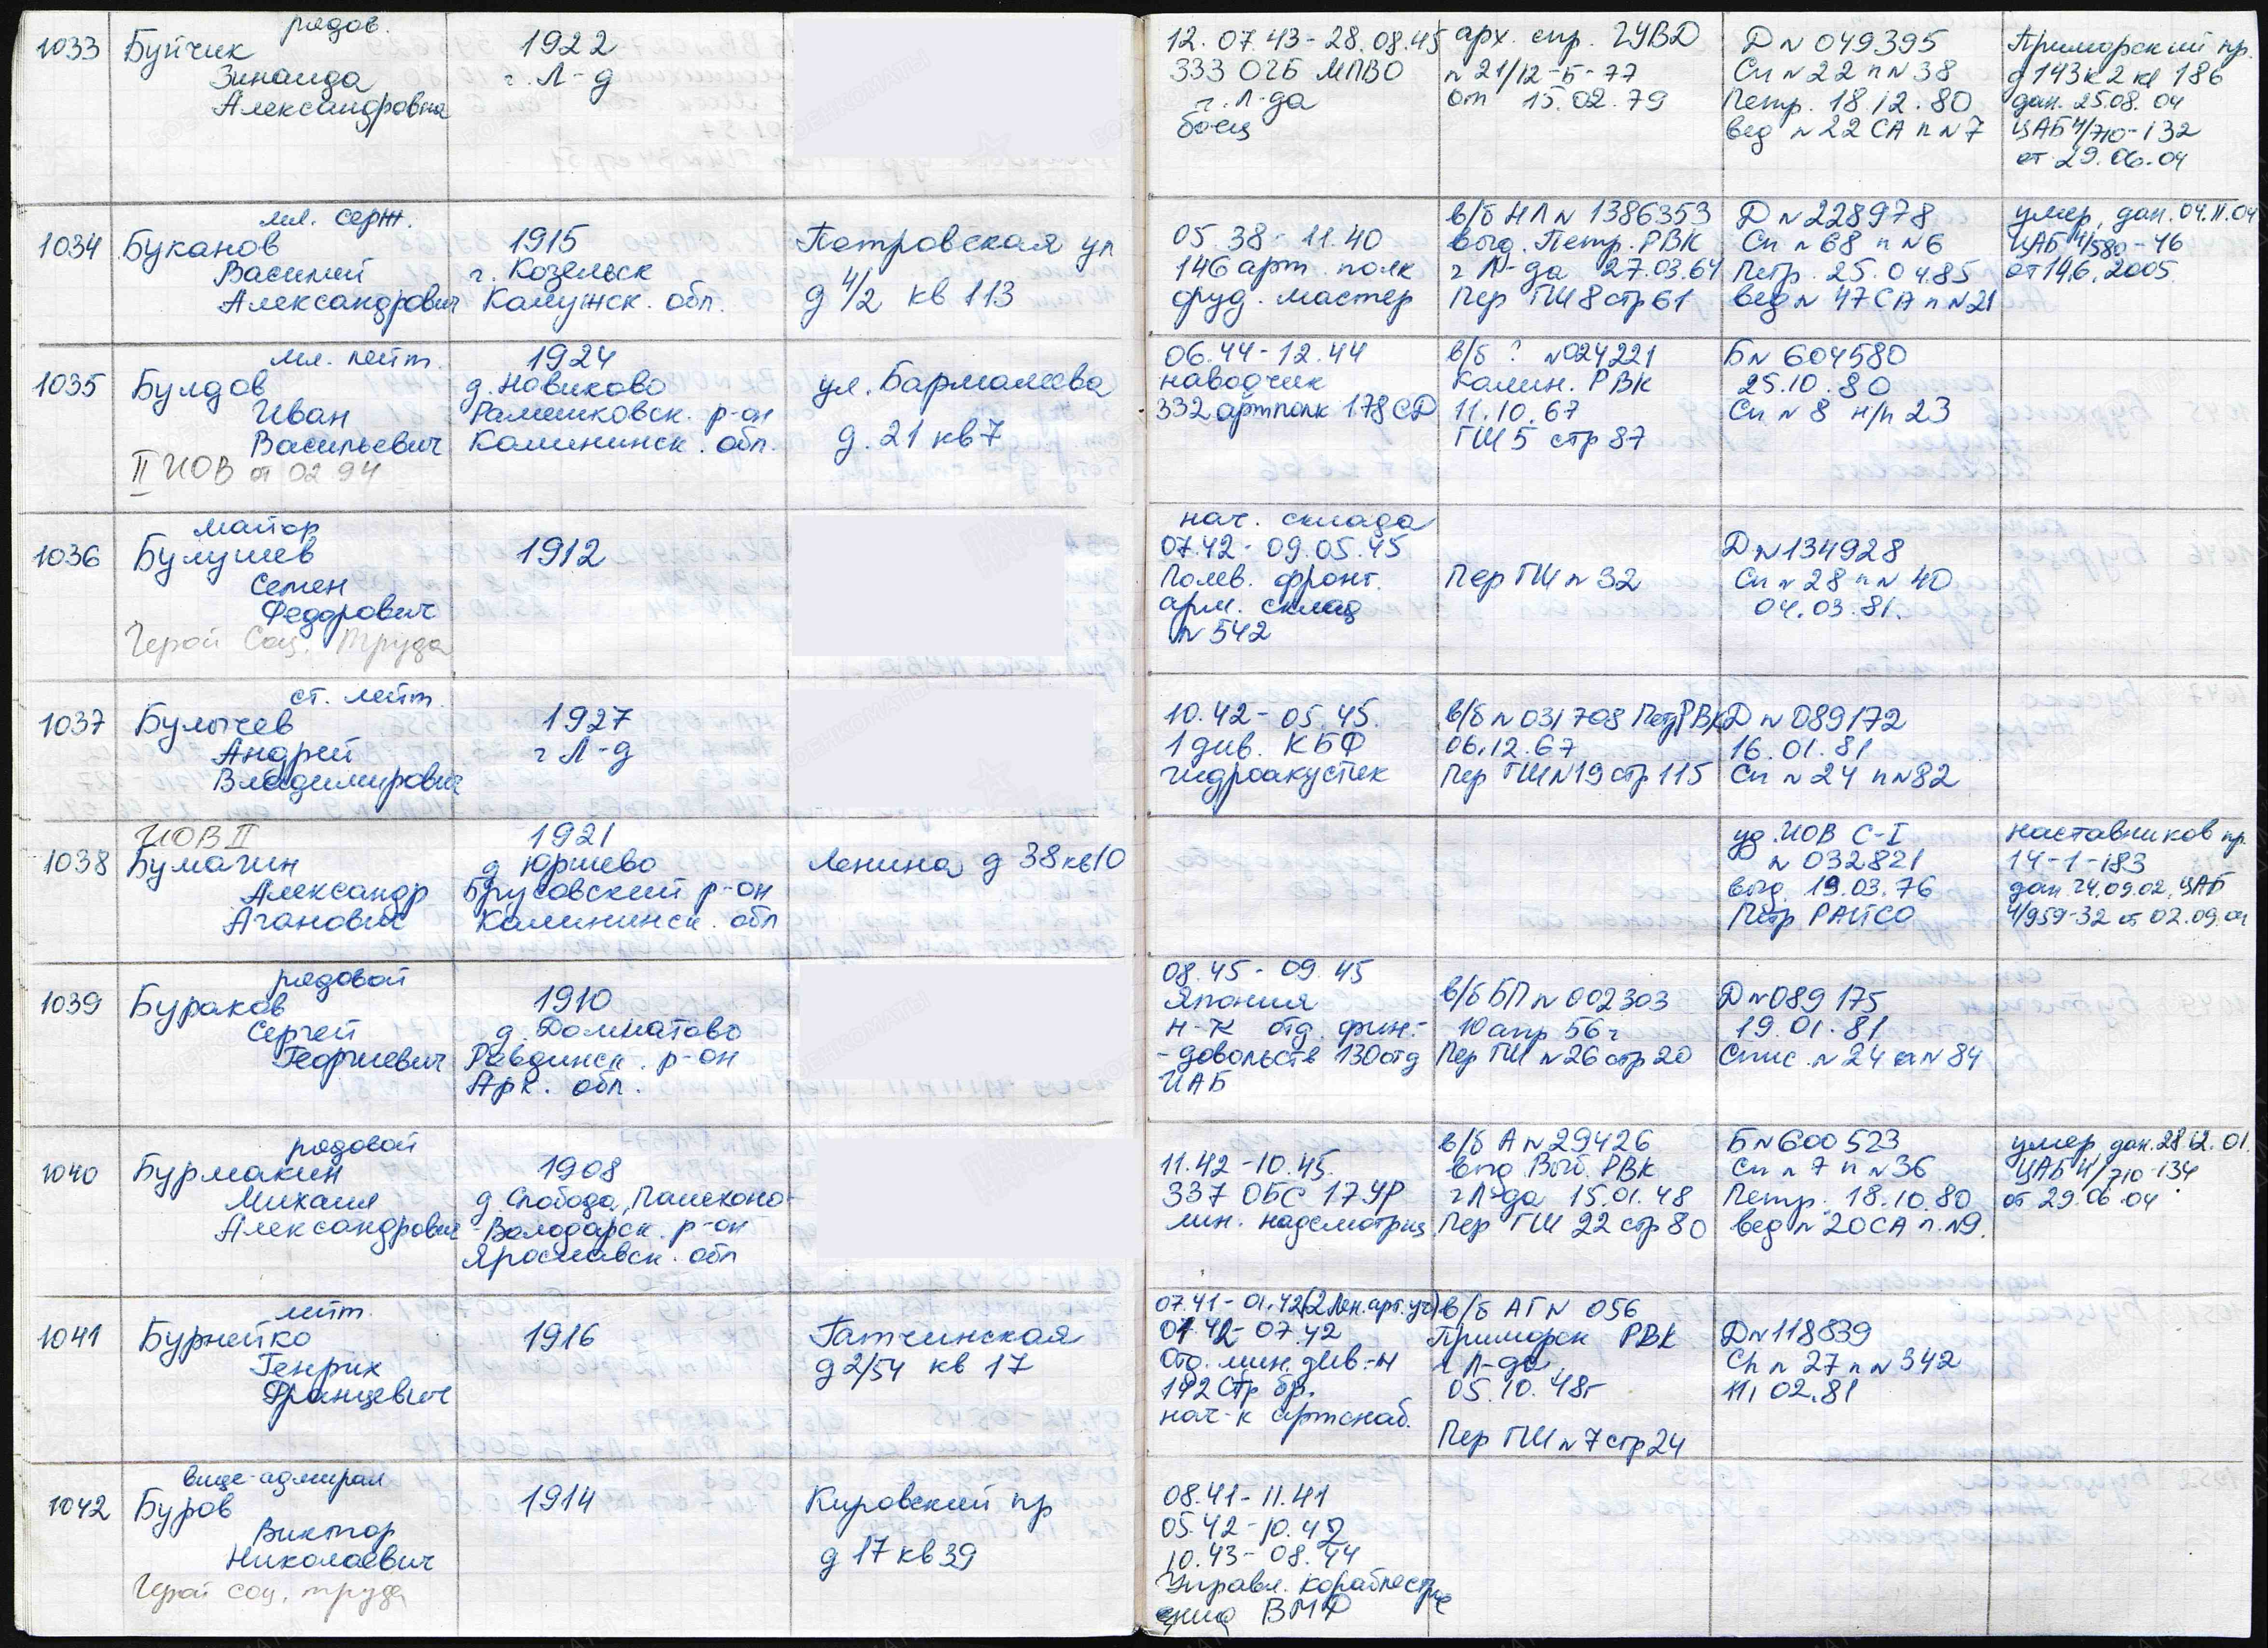 рядов.
1033 Буйчик
Зинаида
Александровна
1922
г. Л-д
12.07.43-28.08.45
333 ОГБ МПВО
г. Л-да
боец
арх. спр. ГУВД
N 21/12-Б-77
от 15.02.79
Д N 049395
Сп N 22 п N 38
Петр. 18.12.80
вед N 22 СА п N 7
Приморский пр.
д 143 к 2 кв 186
дан. 25.08.04
ЦАБ 4/710-132
от 29.06.04
мл. серж.
1034 Буканов
Василий
Александрович
1915
г. Козельск
Калужск. обл.
Петровская ул
д 4/2 кв 113
05.38-11.40
146 арт. полк
оруд. мастер
в/б НЛ N 1386353
выд. Петр. РВК
г Л-да 27.03.64
Пер ГШ 8 стр 61
Д N 228978
Сп N 68 п N 6
Петр. 25.04.85
вед N 47 СА п N 21
умер, дан. 04.11.04
ЦАБ 4/580-46
от 14.6.2005
мл. лейт.
1035 Булдов
Иван
Васильевич
II ИОВ от 02.94
1924
д. Новиково
Рамешковск. р-он
Калининск. обл.
ул. Бармалеева
д. 21 кв 7
06.44-12.44
наводчик
332 артполк 178 СД
в/б ? N 024221
Калин. РВК
11.10.67
ГШ 5 стр 87
Б N 604580
25.10.80
Сп N 8 н/п 23
майор
1036 Булушев
Семен
Федорович
Герой Соц. Труда
1912
нач. склада
07.42-09.05.45
Полев. фронт.
арт. склад
N 542
Пер ГШ N 32
Д N 134928
Сп N 28 п N 40
04.03.81.
ст. лейт.
1037 Булычев
Андрей
Владимирович
1927
г Л-д
10.42-05.45.
1 див. КБФ
гидроакустик
в/б N 031708 Петр РВК
06.12.67
Пер ГШ N 19 стр 115
Д N 089172
16.01.81
Сп N 24 п N 82
ИОВ II
1038 Бумагин
Александр
Аганович
1921
д Юршево
Брусовский р-он
Калининск. обл
Ленина д 38 кв 10
уд. ИОВ С-I
N 032821
выд. 19.03.76
Петр РАЙСО
Наставников пр.
14-1-183
дан 24.09.02, ЦАБ
4/959-32 от 02.09.04
рядовой
1039 Бураков
Сергей
Георгиевич
1910
д. Долматово
Ровдинск. р-он
Арх. обл.
08.45-09.45
Япония
н-к отд. фин.-
-довольств 130 отд
ИАБ
в/б БП N 002303
10 апр 56 г
Пер ГШ N 26 стр 20
Д N 089175
19.01.81
Спис. N 24 п N 84
рядовой
1040 Бурмакин
Михаил
Александрович
1908
д. Слобода, Пошехоно-
-Володарск. р-он
Ярославск. обл
11.42-10.45.
337 ОБС 17 УР
лин. надсмотрщ
в/б А N 29426
выд. Выб. РВК
г Л-да 15.01.48
Пер ГШ 22 стр 80
Б N 600523
Сп N 7 п N 36
Петр. 18.10.80
вед N 20 СА п. N 9.
умер, дан. 28.12.01.
ЦАБ 4/710-134
от 29.06.04.
лейт.
1041 Бурнейко
Генрих
Францевич
1916
Гатчинская
д 2/54 кв 17
07.41-01.42 (2 Лен. арт. уч)
01.42-07.42
Отд. мин. див-н
142 Стр бр.
нач-к артснаб.
в/б АГ N 056
Приморск РВК
г Л-да,
05.10.48г
Пер ГШ N 7 стр 24
Д N 118839
Сп N 27 п N 342
11.02.81
вице-адмирал
1042 Буров
Виктор
Николаевич
Герой соц. труда
1914
Кировский пр
д 17 кв 39
08.41-11.41
05.42-10.42
10.43-08.44
Управл. кораблестрое
ения ВМФ